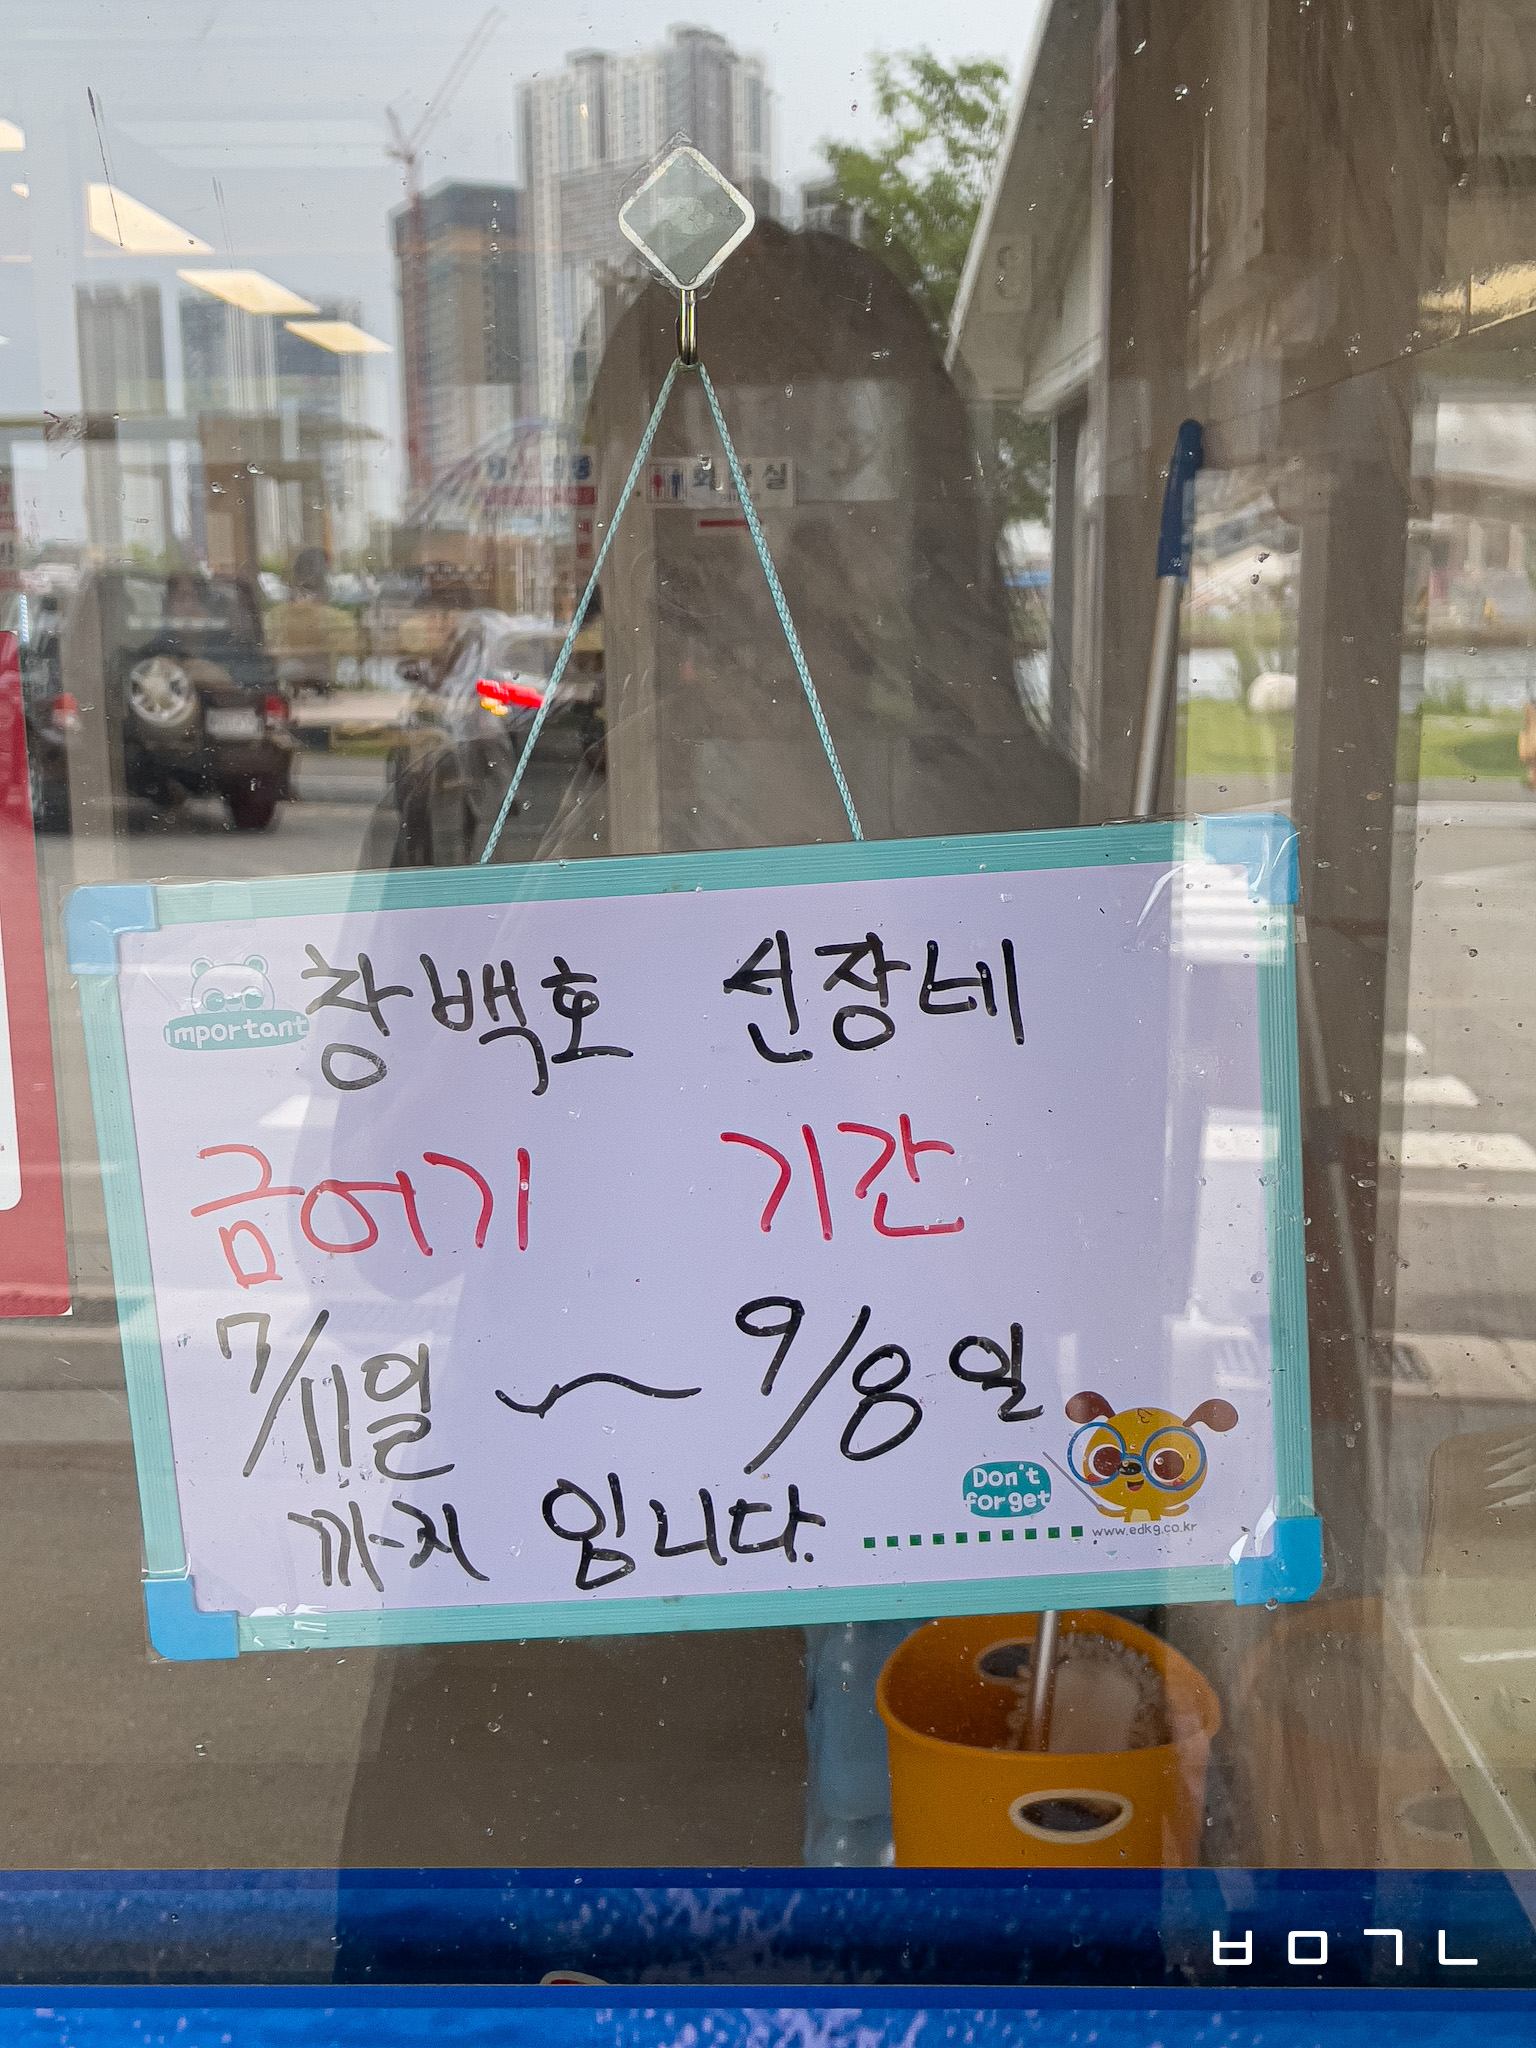 화장실
important
창백호 선장네
금어기 기간
7/11일 ~ 9/8일
까지 입니다.
Don't
forget
www.edkg.co.kr
ㅂㅁㄱㄴ